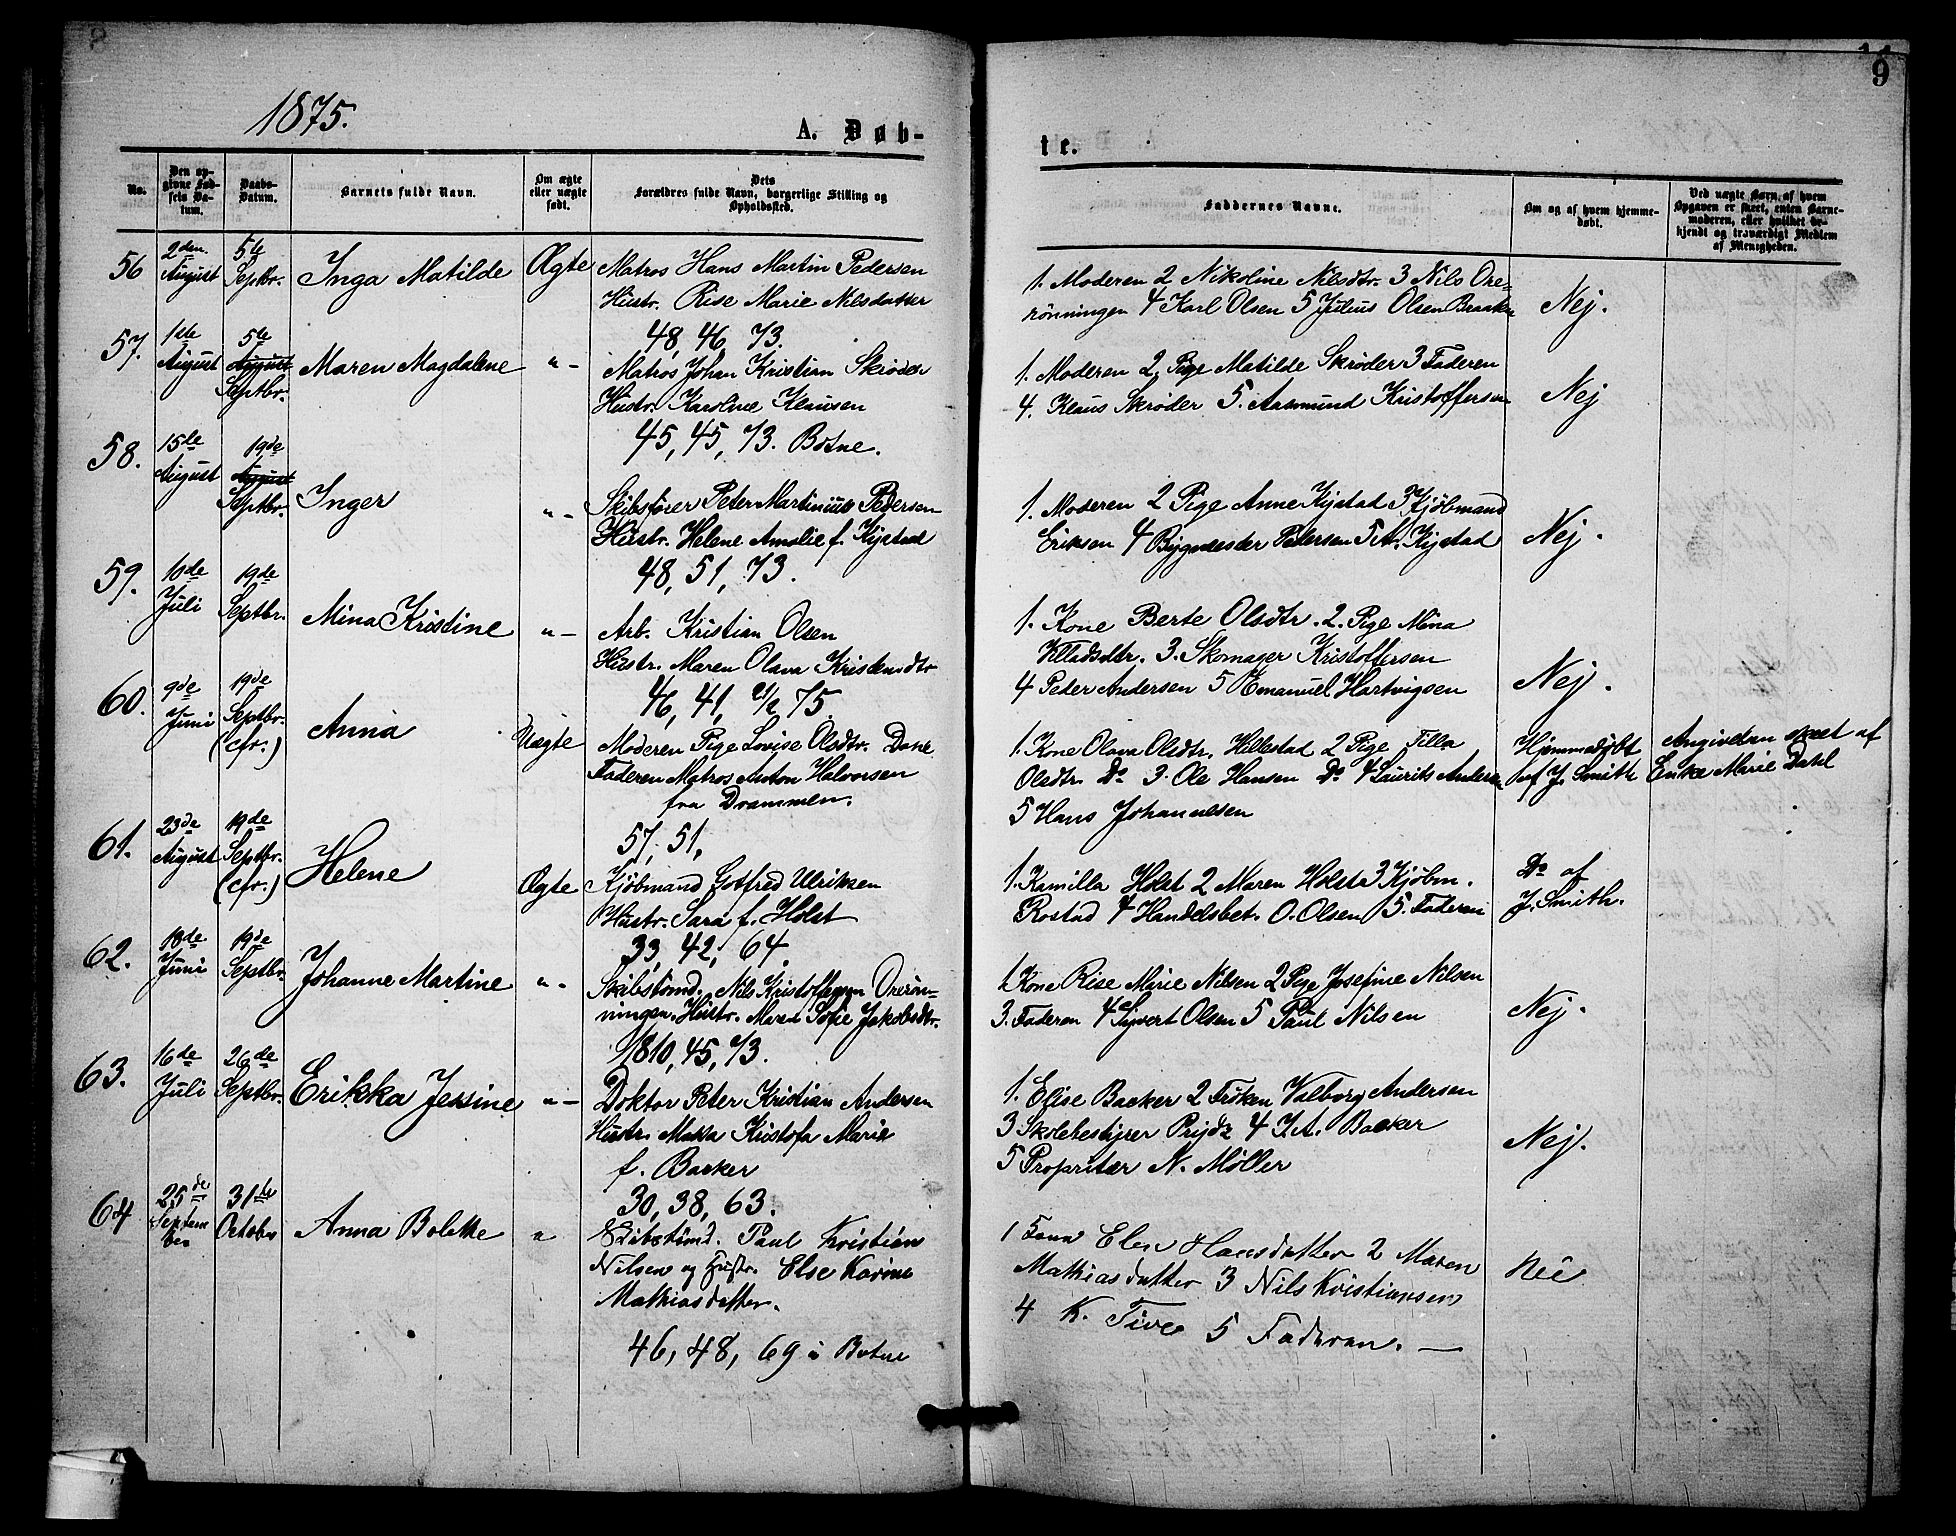 1875.
A. Døb-
No.
Den op-
givne Fød-
sels Da-
tum.
Daabs-
Datum.
Barnets fulde Navn.
Om ægte
eller uægte
født.
Dets
Forældres fulde Navn, borgerlige Stilling og
Opholdssted.
56 2den August 5te Septbr. Inga Matilde Ægte Matros Hans Martin Pedersen
Hustr. Rise Marie Nilsdatter
48, 46, 73.
57. 1ste August 5te August Septbr. Maren Magdalene "- Matros Johan Kristian Skrøder
Hustr. Karoline Klausen
45, 45, 73. Botne.
58. 15de August 19de August Septbr. Inger "- Skibsfører Peter Martinius Pedersen
Hustr. Helene Amalie f. Kystad
48, 51, 73.
59. 10de Juli 19de Septbr. Mina Kristine "- Arb. Kristian Olsen
Hustr. Maren Olava Kristensdtr
46, 41, 2/2 75
60. 9de Juni 19de Septbr. (cfr.) Anna Uægte Moderen Pige Lovise Olsdtr.
Faderen Matros Anton Halvorsen
fra Drammen.
57, 51,
61. 23de August 19de Septbr. (cfr.) Helene Ægte Kjøbmand Gotfred Ulriksen
Hustr. Sara f. Holst
33, 42, 64.
62. 18de Juni 19de Septbr. Johanne Martine "- Skibstømd. Nils Kristoffersen Orerøn-
ningen. Hustr. Maren Sofie Jakobsdtr.
1810, 45, 73.
63. 16de Juli 26de Septbr. Erikka Jessine "- Doktor Peter Kristian Andersen
Hustr. Kristofa Marie
f. Backer
30, 38, 63.
64 25de Septem
ber 31te October Anna Bolette " Skibstømd. Paul Kristian
Nilsen og Hustr. Else Karine
Mathiasdatter.
46, 48, 69 i Botne
9
te.
Faddernes Navne.
Om og af hvem hjemme-
døbt.
Ved uægte Børn, af hvem
Opgaven er skeet, enten Barne-
moderen, eller hvilket be-
kjendt og troværdigt Medlem
af Menigheden.
1. Moderen 2 Nikoline Nilsdtr. 3 Nils Ore-
rønningen 4 Karl Olsen 5 Julius Olsen Nej.
1. Moderen 2. Pige Matilde Skrøder 3 Faderen
4. Klaus Skrøder 5. Aasmund Kristoffersen Nej
1. Moderen 2 Pige Anne Kystad 3 Kjøbmand
Eriksen 4 Bygmester Pedersen 5 A. Kystad Nej.
1. Kone Berte Olsdtr. 2. Pige Mina
3. Skomager Kristoffersen
4 Peder Andersen 5 Emanuel Hartvigsen Nej.
1. Kone Olava Olsdtr. Hillestad 2 Pige Tilla Hjemmedøbt Angivelsen skeet af
Olsdtr. Do 3. Ole Hansen Do 4 Laurits Andersen af J. Smith Enke Marie Dahl
5 Hans Johannesen
1. Kamilla Holst 2 Maren Holst 3 Kjøbm. Do af
Rostad 4 Handelsbet. O. Olsen 5. Faderen J. Smith.
1. Kone Rise Marie Nilsen 2 Pige Josefine Nilsen
3. Faderen 4 Syvert Olsen 5 Paul Nilsen Nej.
1. Elise Backer 2 Frøken Valborg Andersen
3 Skolebestyrer Prydz 4 J. A. Backer Nej.
5 Proprietær N. Møller
1 Elen Hansdatter 2 Maren
Mathiasdatter 3 Nils Kristiansen Nei
4 K. Tive 5 Faderen. —